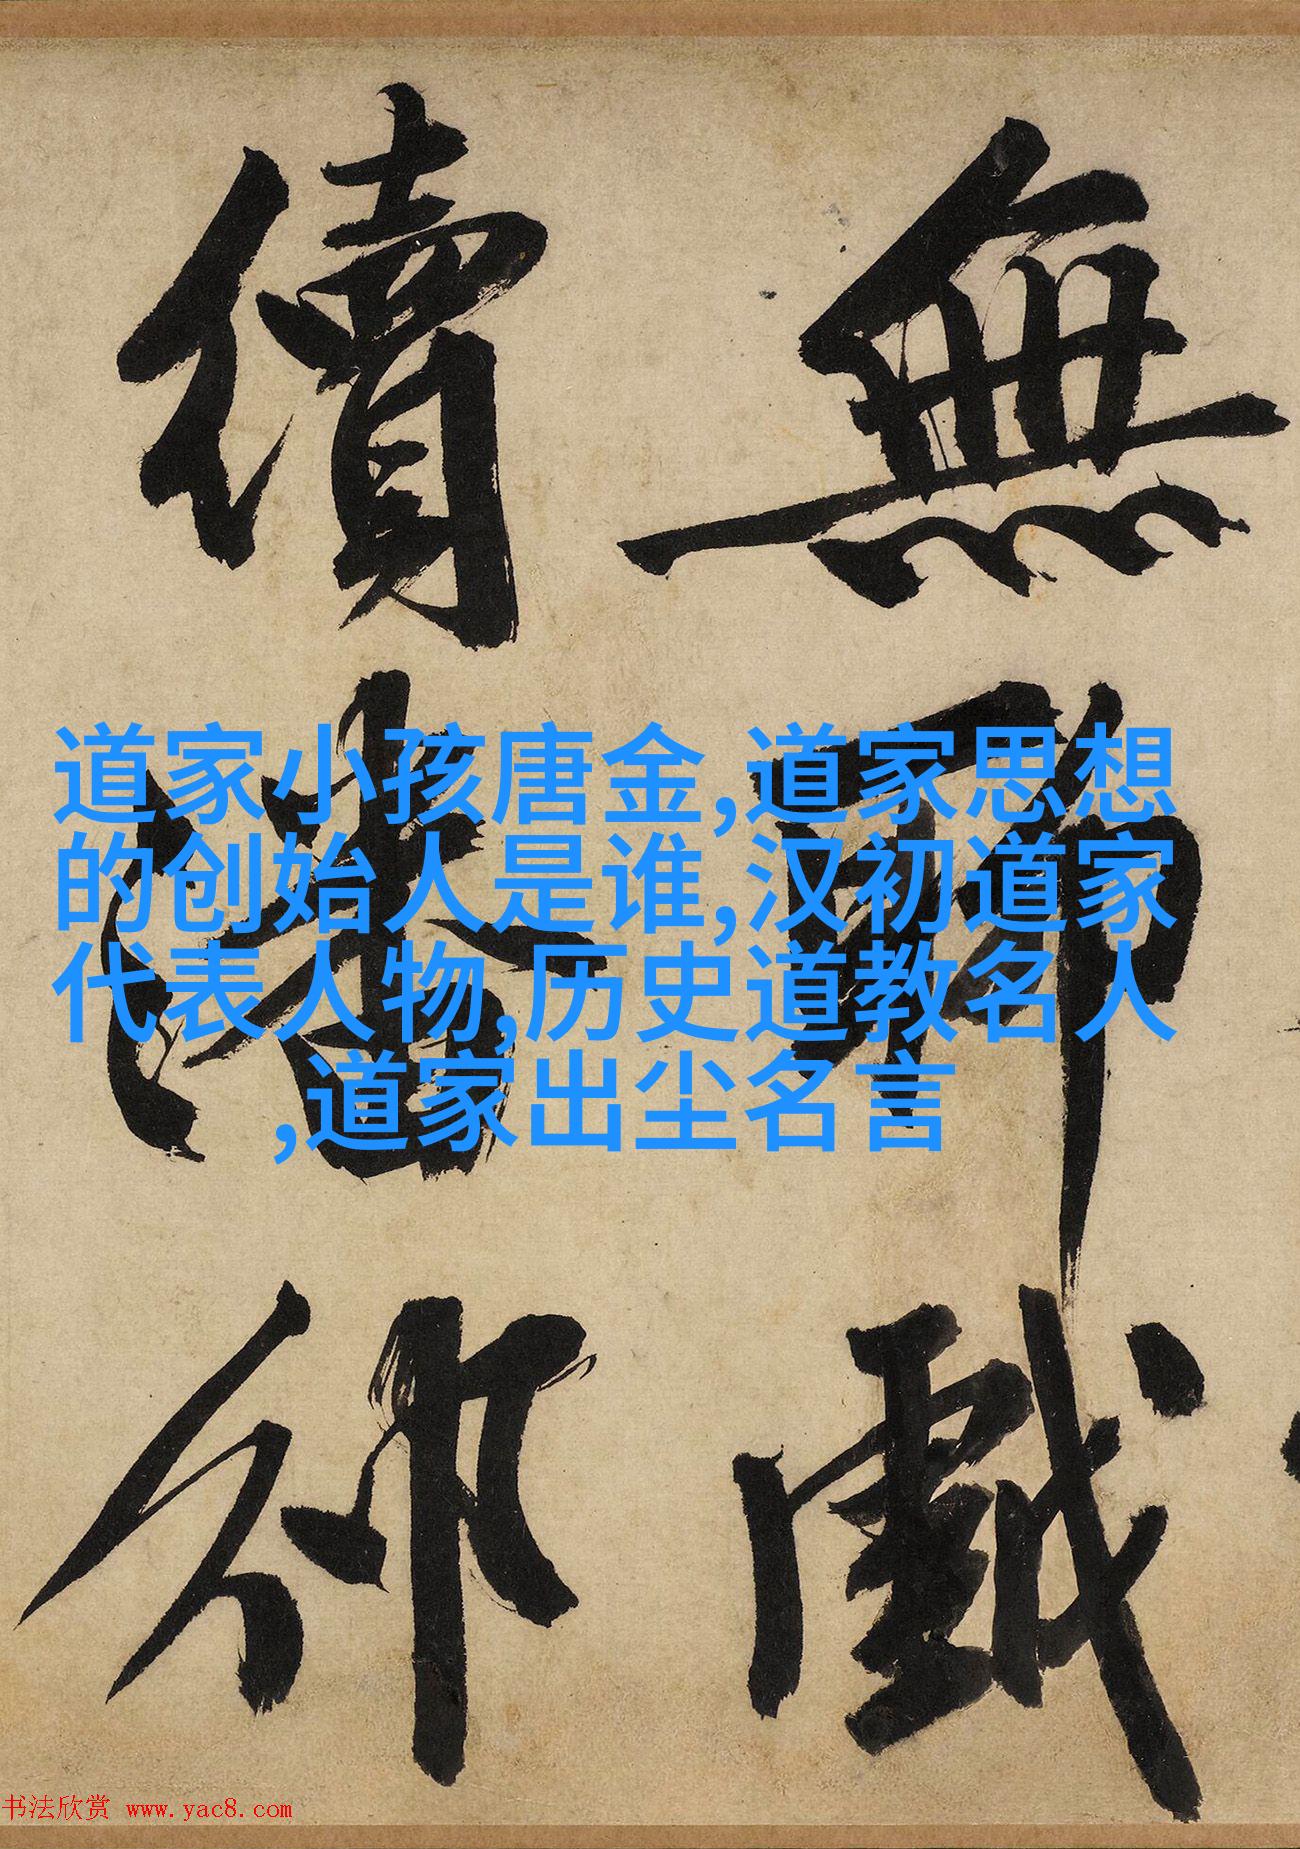 無聊戲
續潘邠
道家小孩唐金,道家思想
的创始人是谁,汉初道家
代表人物,历史道教名人
,道家出尘名言
书法欣赏 www.yac8.com